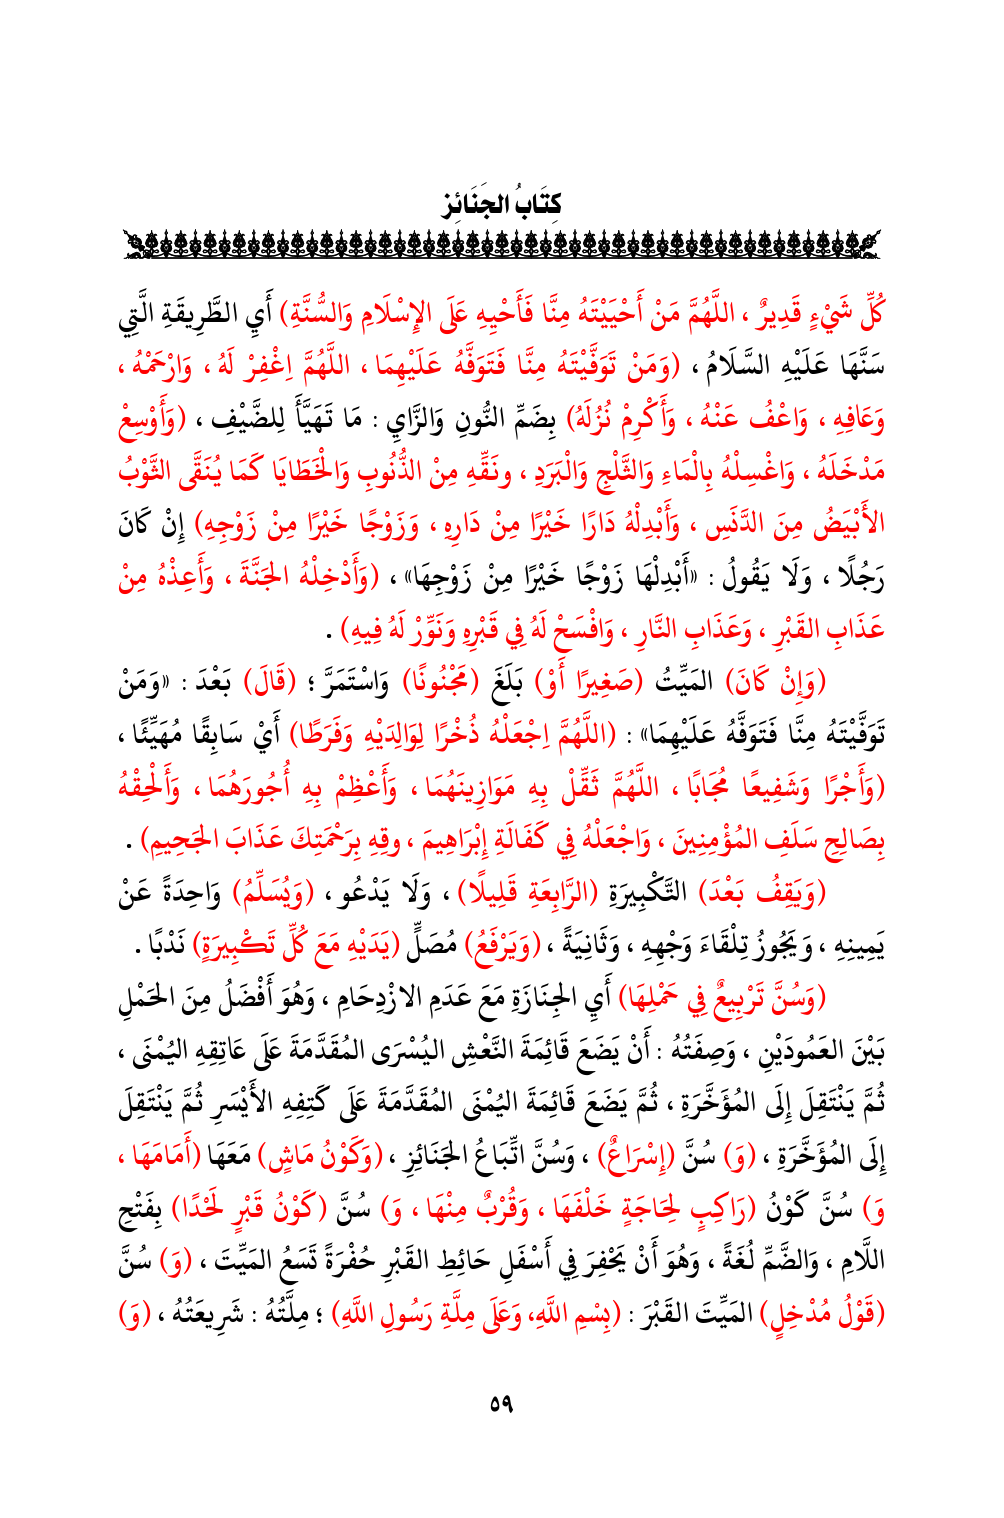 كِتَابُ الجَنَائِزِ
كُلِّ شَيْءٍ قَدِيرٌ ، اللَّهُمَّ مَنْ أَحْيَيْتَهُ مِنَّا فَأَحْيِهِ عَلَى الإِسْلَامِ وَالسُّنَّةِ) أَيِ الطَّرِيقَةِ الَّتِي
سَنَّهَا عَلَيْهِ السَّلَامُ ، (وَمَنْ تَوَفَّيْتَهُ مِنَّا فَتَوَفَّهُ عَلَيْهِمَا ، اللَّهُمَّ اِغْفِرْ لَهُ ، وَارْحَمْهُ ،
وَعَافِهِ ، وَاعْفُ عَنْهُ ، وَأَكْرِمْ نُزُلَهُ) بِضَمِّ النُّونِ وَالزَّايِ : مَا تَهَيَّأَ لِلضَّيْفِ ، (وَأَوْسِعْ
مَدْخَلَهُ ، وَاغْسِلْهُ بِالْمَاءِ وَالثَّلْجِ وَالْبَرَدِ ، ونَقِّهِ مِنْ الذُّنُوبِ وَالْخَطَايَا كَمَا يُنَقَّى الثَّوْبُ
الأَبْيَضُ مِنَ الدَّنَسِ ، وَأَبْدِلْهُ دَارًا خَيْرًا مِنْ دَارِهِ ، وَزَوْجًا خَيْرًا مِنْ زَوْجِهِ) إِنْ كَانَ
رَجُلًا ، وَلَا يَقُولُ : «أَبْدِلْهَا زَوْجًا خَيْرًا مِنْ زَوْجِهَا» ، (وَأَدْخِلْهُ الجَنَّةَ ، وَأَعِذْهُ مِنْ
عَذَابِ القَبْرِ ، وَعَذَابِ النَّارِ ، وَافْسَحْ لَهُ فِي قَبْرِهِ وَنَوِّرْ لَهُ فِيهِ) .
(وَإِنْ كَانَ) المَيِّتُ (صَغِيرًا أَوْ) بَلَغَ (مَجْنُونًا) وَاسْتَمَرَّ ؛ (قَالَ) بَعْدَ : «وَمَنْ
تَوَفَّيْتَهُ مِنَّا فَتَوَفَّهُ عَلَيْهِمَا» : (اللَّهُمَّ اِجْعَلْهُ ذُخْرًا لِوَالِدَيْهِ وَفَرَطًا) أَيْ سَابِقًا مُهَيِّئًا ،
(وَأَجْرًا وَشَفِيعًا مُجَابًا ، اللَّهُمَّ ثَقِّلْ بِهِ مَوَازِينَهُمَا ، وَأَعْظِمْ بِهِ أُجُورَهُمَا ، وَأَلْحِقْهُ
بِصَالِحِ سَلَفِ المُؤْمِنِينَ ، وَاجْعَلْهُ فِي كَفَالَةِ إِبْرَاهِيمَ ، وقِهِ بِرَحْمَتِكَ عَذَابَ الجَحِيمِ) .
(وَيَقِفُ بَعْدَ) التَّكْبِيرَةِ (الرَّابِعَةِ قَلِيلًا) ، وَلَا يَدْعُو ، (وَيُسَلِّمُ) وَاحِدَةً عَنْ
يَمِينِهِ ، وَيَجُوزُ تِلْقَاءَ وَجْهِهِ ، وَثَانِيَةً ، (وَيَرْفَعُ) مُصَلٍّ (يَدَيْهِ مَعَ كُلِّ تَكْبِيرَةٍ) نَدْبًا .
(وَسُنَّ تَرْبِيعٌ فِي حَمْلِهَا) أَيِ الجِنَازَةِ مَعَ عَدَمِ الازْدِحَامِ ، وَهُوَ أَفْضَلُ مِنَ الحَمْلِ
بَيْنَ العَمُودَيْنِ ، وَصِفَتُهُ : أَنْ يَضَعَ قَائِمَةَ النَّعْشِ اليُسْرَى المُقَدَّمَةَ عَلَى عَاتِقِهِ اليُمْنَى ،
ثُمَّ يَنْتَقِلَ إِلَى المُؤَخَّرَةِ ، ثُمَّ يَضَعَ قَائِمَةَ اليُمْنَى المُقَدَّمَةَ عَلَى كَتِفِهِ الأَيْسَرِ ثُمَّ يَنْتَقِلَ
إِلَى المُؤَخَّرَةِ ، (وَ) سُنَّ (إِسْرَاعٌ) ، وَسُنَّ اتِّبَاعُ الجَنَائِزِ ، (وَكَوْنُ مَاشٍ) مَعَهَا (أَمَامَهَا ،
وَ) سُنَّ كَوْنُ (رَاكِبٍ لِحَاجَةٍ خَلْفَهَا ، وَقُرْبٌ مِنْهَا ، وَ) سُنَّ (كَوْنُ قَبْرٍ لَحْدًا) بِفَتْحِ
اللَّامِ ، وَالضَّمِّ لُغَةً ، وَهُوَ أَنْ يَحْفِرَ فِي أَسْفَلِ حَائِطِ القَبْرِ حُفْرَةً تَسَعُ المَيِّتَ ، (وَ) سُنَّ
(قَوْلُ مُدْخِلٍ) المَيِّتَ القَبْرَ : (بِسْمِ اللَّهِ، وَعَلَى مِلَّةِ رَسُولِ اللَّهِ) ؛ مِلَّتُهُ : شَرِيعَتُهُ ، (وَ)
٥٩